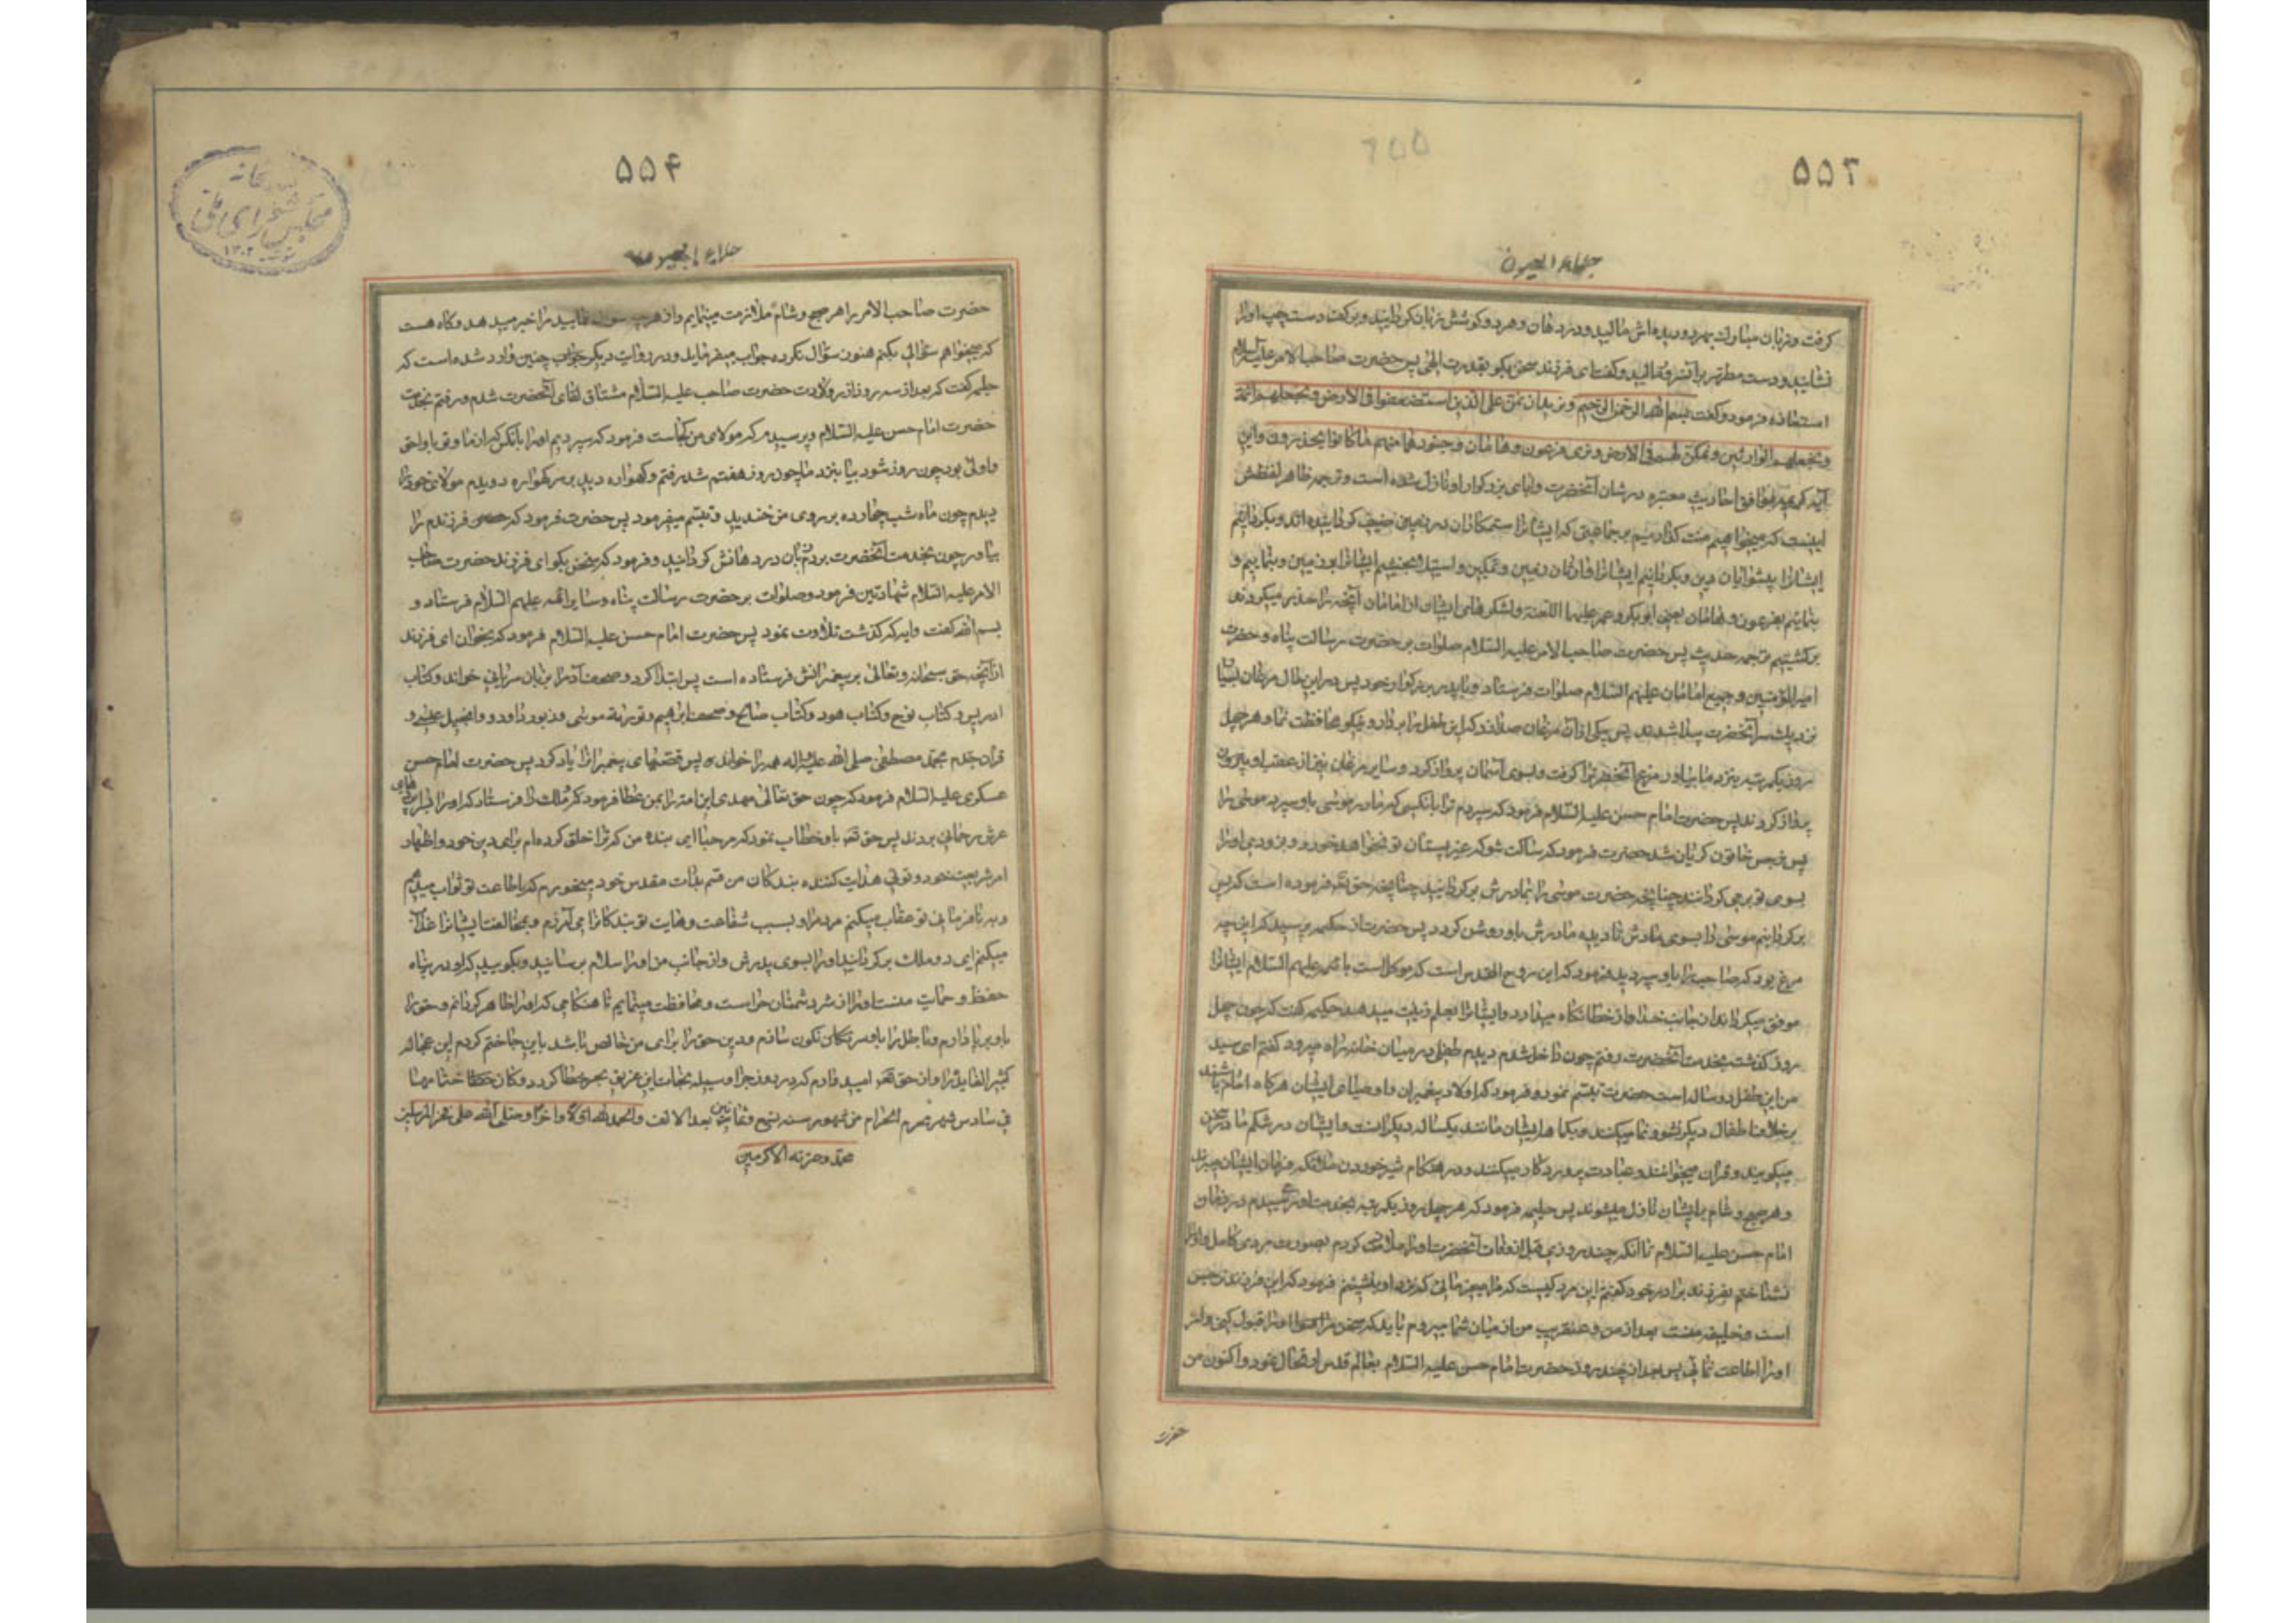 ۵۵۳
جلاء العیون
کرفت و زبان مبارك بهر دو دیده‌اش مالید و در دهان و هر دو کوشش زبان کردانید و بر کف دست چپ اورا
نشانید و دست مطهر بر آنسرور مالید و کفت ای فرزند سخن بکو بقدرت الهی پس حضرت صاحب الامر علیه السلام
استعاذه فرمود و کفت بسم الله الرحمن الرحیم ونرید ان نمن علی الذین استضعفوا فی الارض ونجعلهم ائمة
ونجعلهم الوارثین ونمکن لهم فی الارض ونری فرعون وهامان وجنودهما منهم ما کانوا یحذرون واین
آیه کریمه موافق احادیث معتبره در شان آنحضرت و ابای بزرکوار او نازل شده است و ترجمه ظاهر لفظش
اینست که میخواهیم منت کذاریم بر جماعتی که ایشانرا ستمکاران در زمین ضعیف کردانیده‌اند و بکردانیم
ایشانرا پیشوایان دین و بکردانیم ایشانرا وارثان زمین و تمکین و استیلا بخشیم ایشانرا بر زمین و بنمائیم و
بنمائیم بفرعون و هامان یعنی ابوبکر و عمر علیهما اللعنة و لشکرهای ایشان از امامان آنچه را حذر میکردند
برکشتیم بترجمه حدیث پس حضرت صاحب الامر علیه السلام صلوات بر حضرت رسالت پناه و حضرت
امیر المؤمنین و جمیع امامان علیهم السلام صلوات فرستاد و تا پدر بزرکوار خود پس در این حال مرغان بسیا
نزدیك سر آنحضرت پیدا شدند پس بیکی از آن مرغان صدا زد که این طفل را بردار و نیکو محافظت نما و هر چهل
روز یکمرتبه بنزد ما بیاور مرغ آنحضرترا کرفت و بسوی آسمان پرواز کرد و سایر مرغان نیز از عقب او پیروی
پرواز کردند پس حضرت امام حسن علیه السلام فرمود که سپردم ترا بانکسی که مادر موسی باو سپرد موسی را
پس نرجس خاتون کریان شد حضرت فرمود که ساکت شو که غیر پستان تو نخواهد خورد و بزودی اورا
بسوی تو برمی کردانند چنانچه حضرت موسی را بمادرش بر کردانید چنانچه حق تعـ فرموده است که پس
بر کردانیم موسی را بسوی مادرش تا دیده مادرش باو روشن کردد پس حضرت از حکیمه پرسید که این چه
مرغ بود که صاحب را باو سپردید فرمود که این روح القدس است که موکلست بائمه علیهم السلام ایشانرا
موفق میکرداند از جانب خدا و از خطا نکاه میدارد و ایشانرا بعلم زینت میدهد حکیمه کفت که چون چهل
روز کذشت بخدمت آنحضرت رفتم چون داخل شدم دیدم طفلی در میان خانه راه میرود کفتم ای سید
من این طفل دوساله است حضرت تبسم نمود و فرمود که اولاد پیغمبران و اوصیای ایشان هرکاه امام باشند
بر خلاف اطفال دیکر نشو و نما میکنند و یکماهه ایشان مانند یکساله دیکرانست و ایشان در شکم مادر سخن
میکویند و قران میخوانند و عبادت پروردکار میکنند و در هنکام شیر خوردن ملائکه فرمان ایشان میبرند
و هر صبح و شام بر ایشان نازل میشوند پس حلیمه فرمود که هر چهل روز یکمرتبه بخدمت او میرسیدم در زمان
امام حسن علیه السلام تا آنکه چند روزی قبل از وفات آنحضرت اورا ملاقات کردم بصورت مردی کامل و اورا
نشناختم بفرزند برادر خود کفتم این مرد کیست که مرا میفرمائی که نزد او بنشینم فرمود که این فرزند نرجس
است و خلیفه منست بعد از من و عنقریب من از میان شما میروم باید که سخن اورا قبول کنی و امر
اورا اطاعت نمائی پس بعد از چند روز حضرت امام حسن علیه السلام بعالم قدس ارتحال نمود و اکنون من
حضرت
۵۵۴
جلاء العیون
حضرت صاحب الامر را هر صبح و شام ملازمت مینمایم و از هر چه سوال نمایید مرا خبر میدهد و کاه هست
که میخواهم سؤالی بکنم هنوز سؤال نکرده جواب میفرماید و در روایت دیکر چنین وارد شده است که
حلیمه کفت که بعد از سه روز از ولادت حضرت صاحب علیه السلام مشتاق لقای آنحضرت شدم و رفتم بخدمت
حضرت امام حسن علیه السلام و پرسیدم که مولای من کجاست فرمود که سپردیم اورا بانکس که از ما و تو باو احق
و اولی بود چون روز هفتم شود بیا بنزد ما چون روز هفتم شد رفتم و کهواره دیدم بر سر کهواره دویدم مولای خود را
دیدم چون ماه شب چهارده بر روی من خندید و تبسم میفرمود پس حضرت فرمود که فرزندم را
بیاور چون بخدمت آنحضرت بردم زبان در دهانش کردانید و فرمود که سخن بکو ای فرزند حضرت صاحب
الامر علیه السلام شهادتین فرمود و صلوات بر حضرت رسالت پناه و سایر ائمه علیهم السلام فرستاد و
بسم الله کفت و ایه که کذشت تلاوت نمود پس حضرت امام حسن علیه السلام فرمود که بخوان ای فرزند
از آنچه حق سبحانه وتعالی بر پیغمبرانش فرستاده است پس ابتدا کرد و صحف آدم را بزبان سریانی خواند و کتاب
ادریس و کتاب نوح و کتاب هود و کتاب صالح و صحف ابراهیم و توریة موسی و زبور داود و انجیل عیسی و
قران جدم محمد مصطفی صلی الله علیه واله همه را خواند پس قصهای پیغمبرانرا یاد کرد پس حضرت امام حسن
عسکری علیه السلام فرمود که چون حق تعالی مهدی این امة را بمن عطا فرمود دو ملك را فرستاد که اورا بسراپردهای
عرش رحمانی بردند پس حق تعـ باو خطاب نمود که مرحبا ای بنده من که ترا خلق کرده‌ام برای دین خود و اظهار
امر شریعت خود و توئی هدایت کننده بندکان من قسم بذات مقدس خود میخورم که باطاعت تو ثواب میدهم
و بنافرمانی تو عقاب میکنم مردم را و بسبب شفاعت و هدایت تو بندکانرا می آمرزم و بمخالفت ایشانرا عذاب
میکنم ای دو ملك برکردانید اورا بسوی پدرش و از جانب من اورا سلام برسانید و بکویید که او در پناه
حفظ و حمایت منست اورا از شر دشمنان حراست و محافظت مینمایم تا هنکامی که اورا ظاهر کردانم و حق را
باو برپا دارم و باطل را باو سرنکون سازم و دین حق را برای من خالص باشد باینجا ختم کردم این عجاله
کثیر الفایده را و از حق تعـ امید دارم که در روز جزا وسیله نجات این غریق بحر خطا کردد وکان ختامها
فی سادس شهر محرم الحرام من شهور سنه تسع وثمانین بعد الالف والحمد لله اولا واخرا وصلی الله علی فخر المرسلین
محمد وعترته الاکرمین